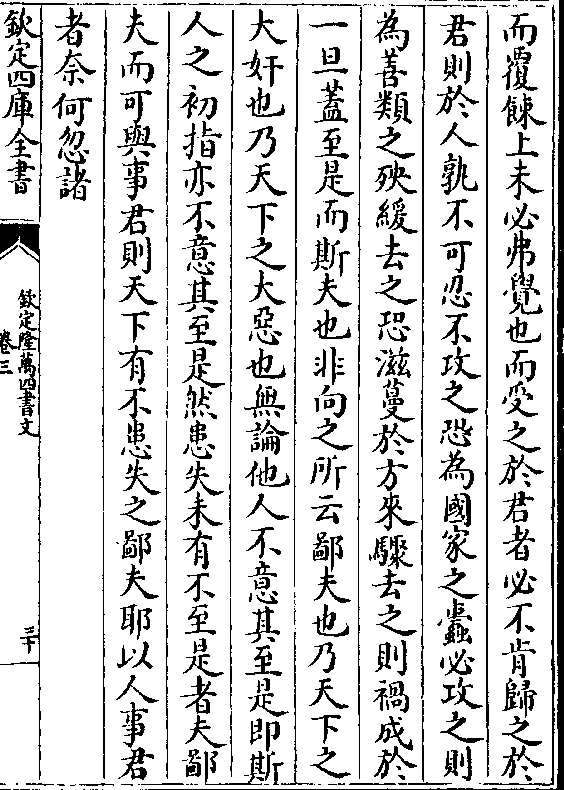 而覆餗上未必弗覺也而受之於君者必不肯歸之於
君則於人孰不可忍不攻之恐為國家之蠹必攻之則
為善類之殃緩去之恐滋蔓於方來驟去之則禍成於
一旦蓋至是而斯夫也非向之所云鄙夫也乃天下之
大奸也乃天下之大惡也無論他人不意其至是即斯
人之初指亦不意其至是然患失未有不至是者夫鄙
夫而可與事君則天下有不患失之鄙夫耶以人事君
者奈何忽諸
欽定四庫全書
欽定隆萬四書文
卷三
三十